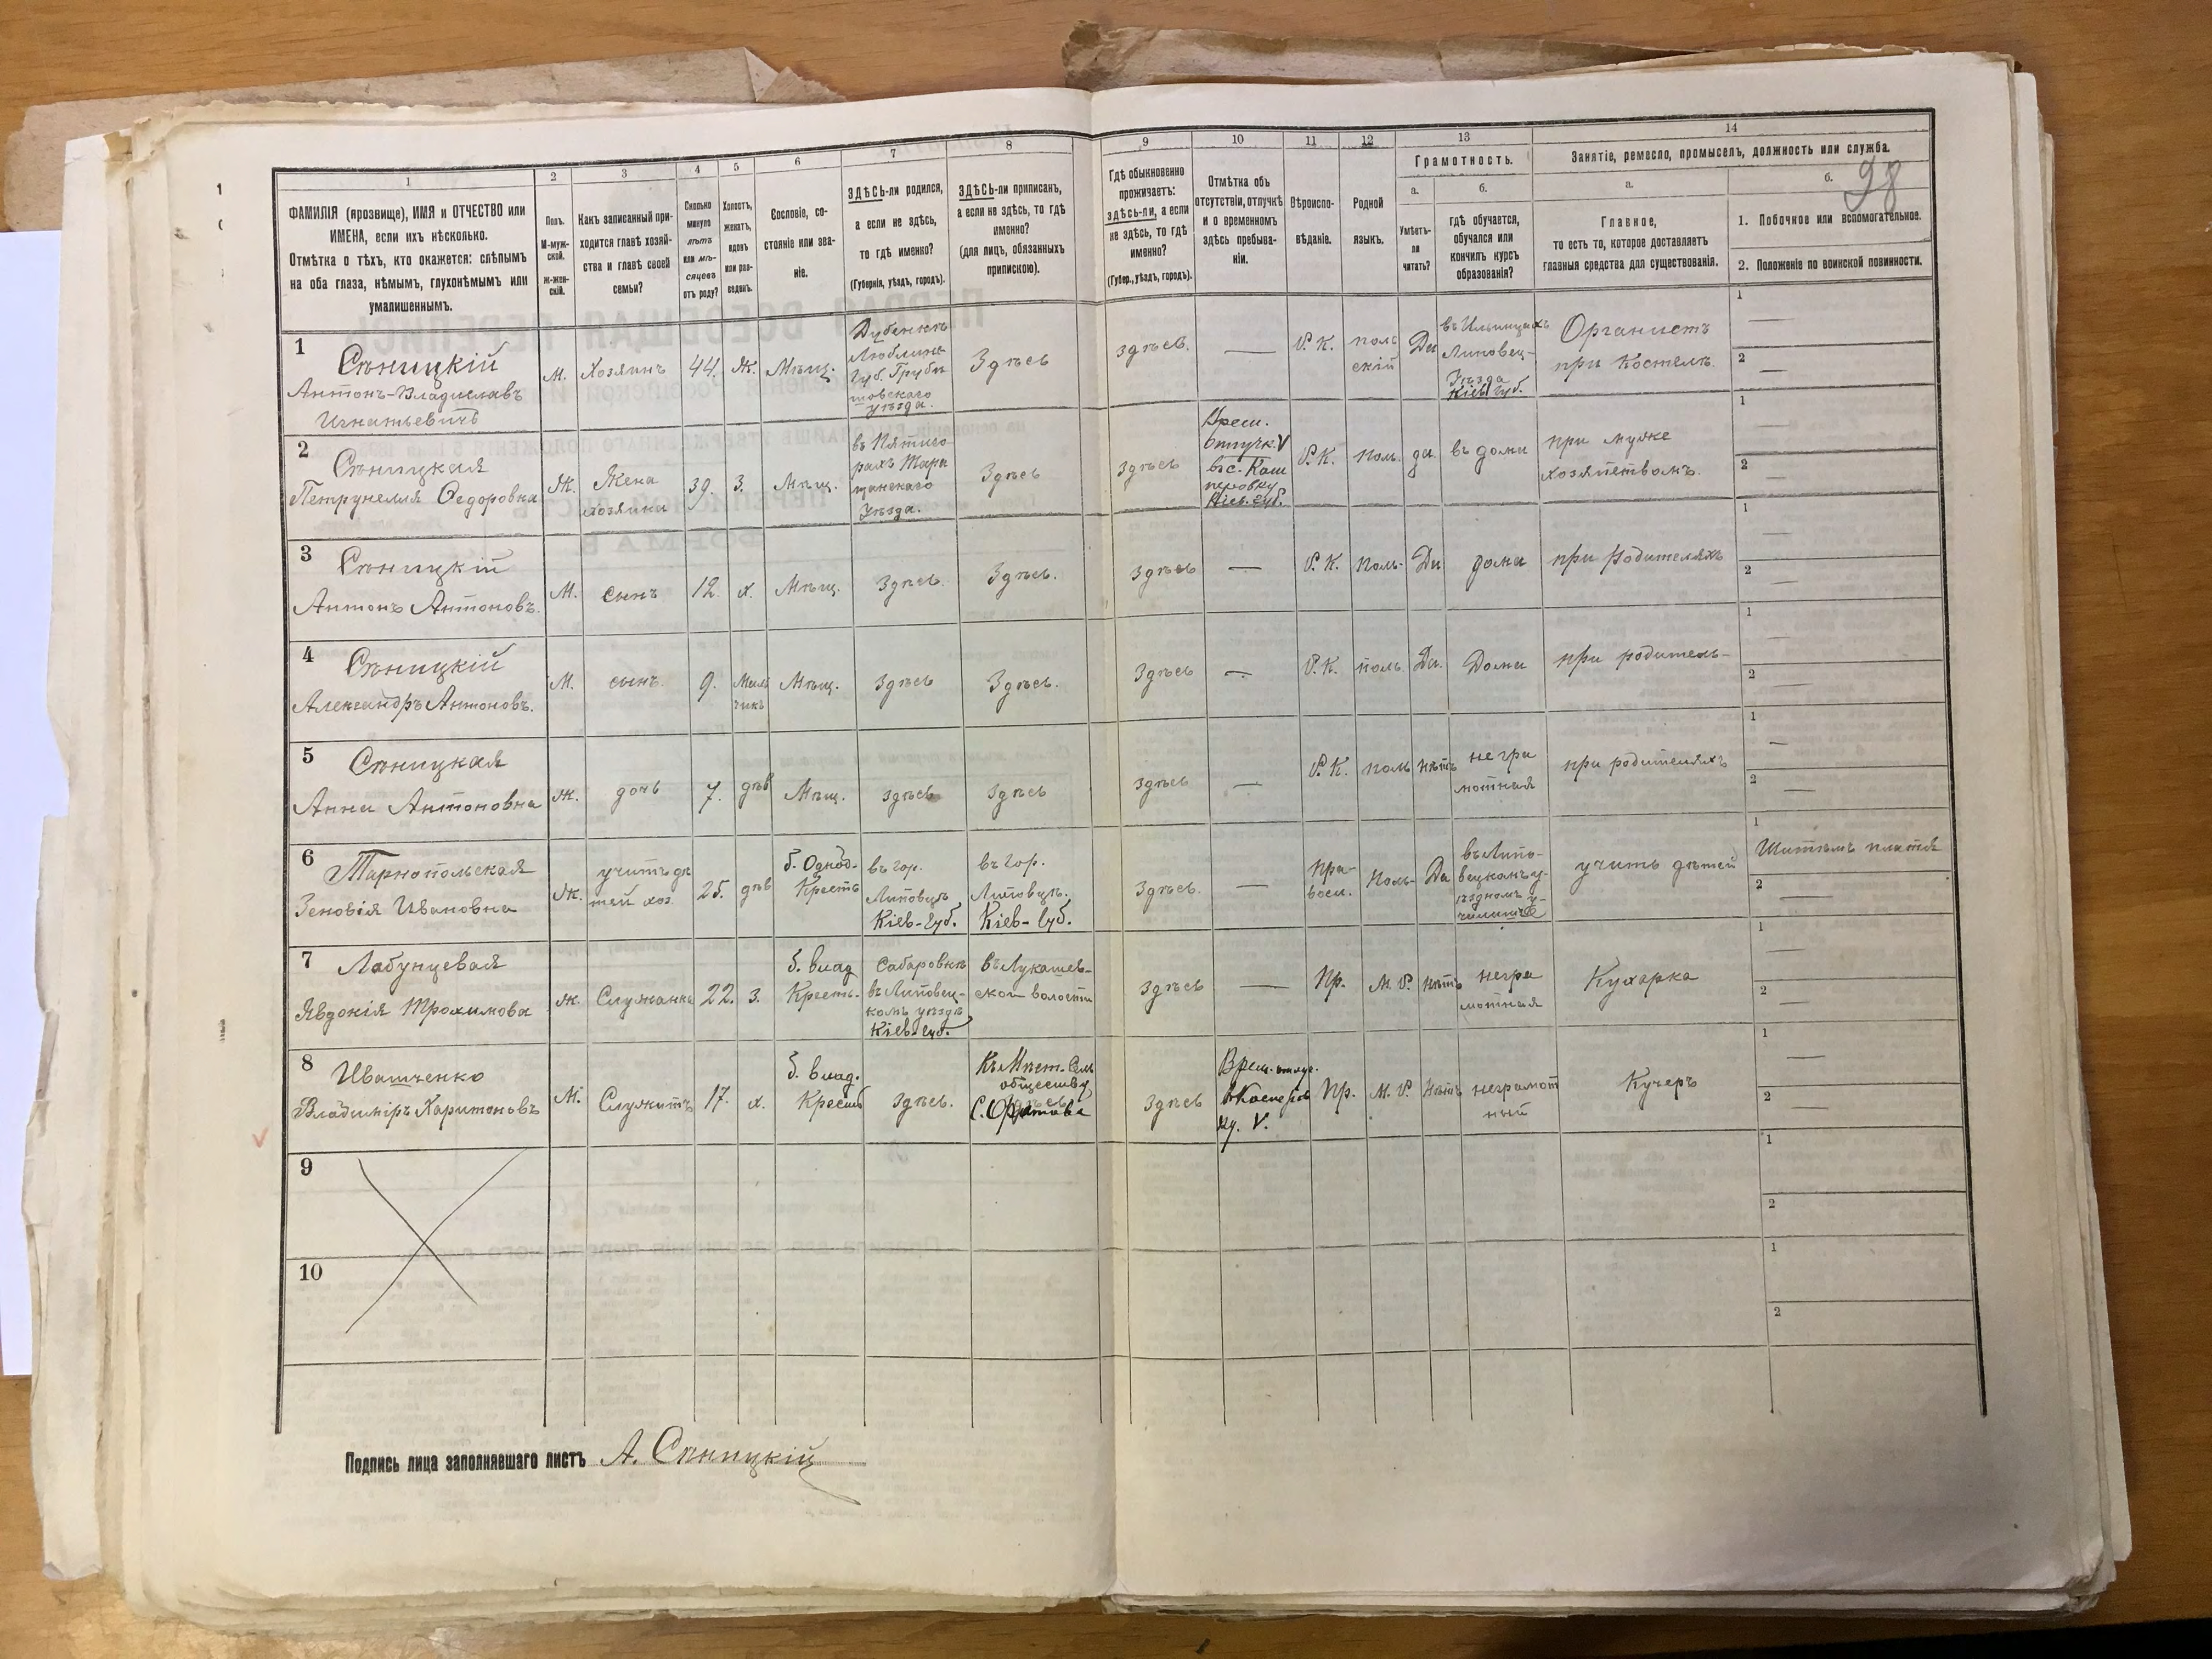 98
1 2 3 4 5 6 7 8 9 10 11 12 13 14
ФАМИЛІЯ (прозвище), ИМЯ и ОТЧЕСТВО или
ИМЕНА, если ихъ нѣсколько.
Отмѣтка о тѣхъ, кто окажется: слѣпымъ
на оба глаза, нѣмымъ, глухонѣмымъ или
умалишеннымъ.
Полъ.
М-муж-
ской.
Ж-жен-
скій.
Какъ записанный при-
ходится главѣ хозяй-
ства и главѣ своей
семьи?
Сколько
минуло
лѣтъ
или мѣ-
сяцевъ
отъ роду?
Холостъ,
женатъ,
вдовъ
или раз-
веденъ.
Сословіе, со-
стояніе или зва-
ніе.
ЗДѢСЬ-ли родился,
а если не здѣсь,
то гдѣ именно?
(Губернія, уѣздъ, городъ).
ЗДѢСЬ-ли приписанъ,
а если не здѣсь, то гдѣ
именно?
(для лицъ, обязанныхъ
припискою).
Гдѣ обыкновенно
проживаетъ:
здѣсь-ли, а если
не здѣсь, то гдѣ
именно?
(Губер., уѣздъ, городъ).
Отмѣтка объ
отсутствіи, отлучкѣ
и о временномъ
здѣсь пребыва-
ніи.
Вѣроиспо-
вѣданіе.
Родной
языкъ.
Грамотность.
а.
Умѣетъ-
ли
читать?
б.
гдѣ обучается,
обучался или
кончилъ курсъ
образованія?
Занятіе, ремесло, промыселъ, должность или служба.
а.
Главное,
то есть то, которое доставляетъ
главныя средства для существованія.
б.
1. Побочное или вспомогательное.
2. Положеніе по воинской повинности.
1
Сѣницкій
Антонъ-Владиславъ
Игнатьевичъ
М.
Хозяинъ
44.
Ж.
Мѣщ.
Дубенкѣ
Люблинс
Губ. Груби
шовскаго
уѣзда.
Здѣсь
здѣсь.
—
Р. К.
поль
скій
Да
въ Ильинцахъ
Липовец-
Уѣзда
Кіев Губ.
Органистъ
при Костелѣ.
1 —
2 —
2
Сѣницкая
Петрунелия Ѳедоровна
Ж.
Жена
хозяина
39.
З.
Мѣщ.
въ Пятиго
рахъ Тара
щанскаго
Уѣзда.
Здѣсь
здѣсь
Врем.
отлучк. V
въ с. Каш
перовку
Кіев. губ.
Р. К.
поль.
да.
въ дома
при муже
хозяйствомъ.
1 —
2 —
3
Сѣницкій
Антонъ Антоновъ.
М.
сынъ
12.
х.
Мѣщ.
Здѣсь.
Здѣсь.
здѣсь
—
Р. К.
Поль-
Да
дома
при Родителяхъ
1 —
2 —
4
Сѣницкій
Александръ Антоновъ.
М.
сынъ.
9.
Маль
чикъ
Мѣщ.
Здѣсь
Здѣсь.
здѣсь
—
Р. К.
поль.
Да.
Дома
при родитель-
1 —
2 —
5
Сѣницкая
Анна Антоновна
Ж.
дочь
7.
дѣв
Мѣщ.
здѣсь
Здѣсь
здѣсь
—
Р. К.
поль
нѣтъ
негра
мотная
при родителяхъ
1 —
2 —
6
Тарнопольская
Зеновія Ивановна
Ж.
учитъ дѣ
тей хоз.
25.
дѣв
б. Однод-
Крестъ
въ гор.
Липовцѣ
Кіев-Губ.
въ гор.
Липовцѣ.
Кіев-Губ.
Здѣсь.
—
Пра-
восл.
Поль-
Да
въ Липо-
вецкомъ у-
ѣздномъ у-
чилищѣ
учитъ дѣтей
1 Шитьемъ платья
2 —
7
Лабунцевая
Явдокія Трохимова
ж.
Служанка
22.
з.
б. влад
Кресть-
Сабаровкѣ
въ Липовец-
комъ уездѣ
Кіев. Губ.
въ Лукашев-
ской волости
здѣсь
—
Пр.
М. Р.
нѣтъ
негра
мотная
Кухарка
1 —
2 —
8
Иващенко
Владимиръ Харитоновъ
М.
Служитъ
17.
х.
б. влад.
Кресть
Здѣсь.
Къ Мѣст. Сель
обществу
здѣсь
Пр.
М. Р.
Нѣтъ
неграмот
ный
Кучеръ
1 —
2 —
9
1
2
10
1
2
Подпись лица заполнявшаго листъ А. Сѣницкій